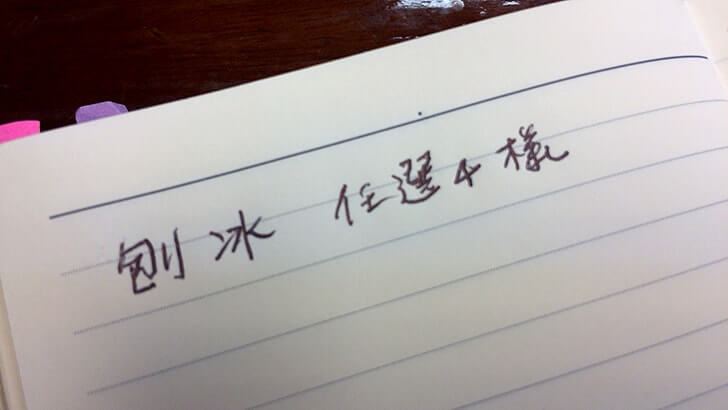 刨冰 任選4樣